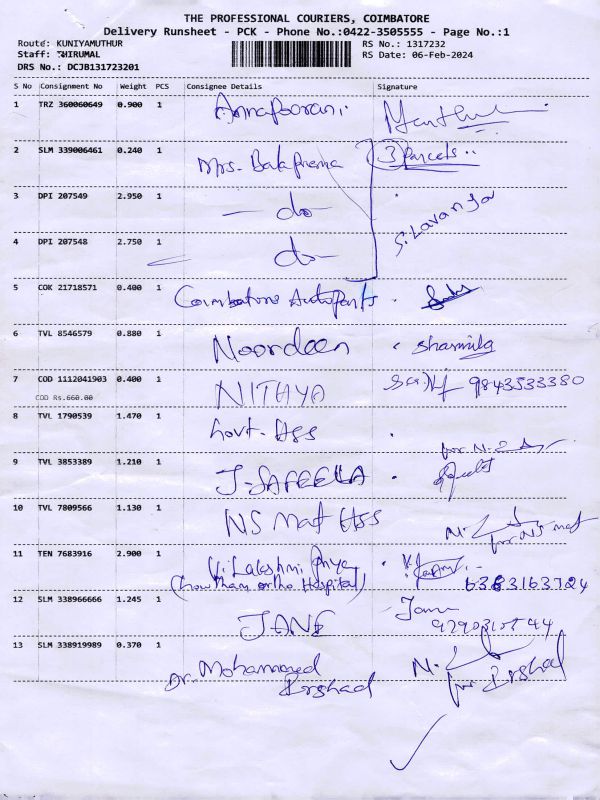 THE PROFESSIONAL COURIERS, COIMBATORE
Delivery Runsheet - PCK - Phone No.:0422-3505555 - Page No.:1
Route: KUNIYAMUTHUR RS No.: 1317232
Staff: THIRUMAL RS Date: 06-Feb-2024
DRS No.: DCJB131723201
S No Consignment No Weight PCS Consignee Details Signature
1 TRZ 360060649 0.900 1 Annapoorani
2 SLM 339006461 0.240 1 Mrs. Balaprema 3 Parcels..
3 DPI 207549 2.950 1 - do - S. Lavanya
4 DPI 207548 2.750 1 - do -
5 COK 21718571 0.400 1 Coimbatore Autoparts
6 TVL 8546579 0.880 1 Noordeen Sharmila
7 COD 1112041903 0.400 1 NITHYA 9843533380
COD Rs.660.00
8 TVL 1790539 1.470 1 Govt. Hss
9 TVL 3853389 1.210 1 J-SAFEELA
10 TVL 7809566 1.130 1 NS mat Hss for NS mat
11 TEN 7683916 2.900 1 V. Lakshmi Priya
(Gowtham ortho Hospital) 6383163724
12 SLM 338966666 1.245 1 JANE Jane
13 SLM 338919989 0.370 1 Dr. Mohammed
Irshad for Irshad